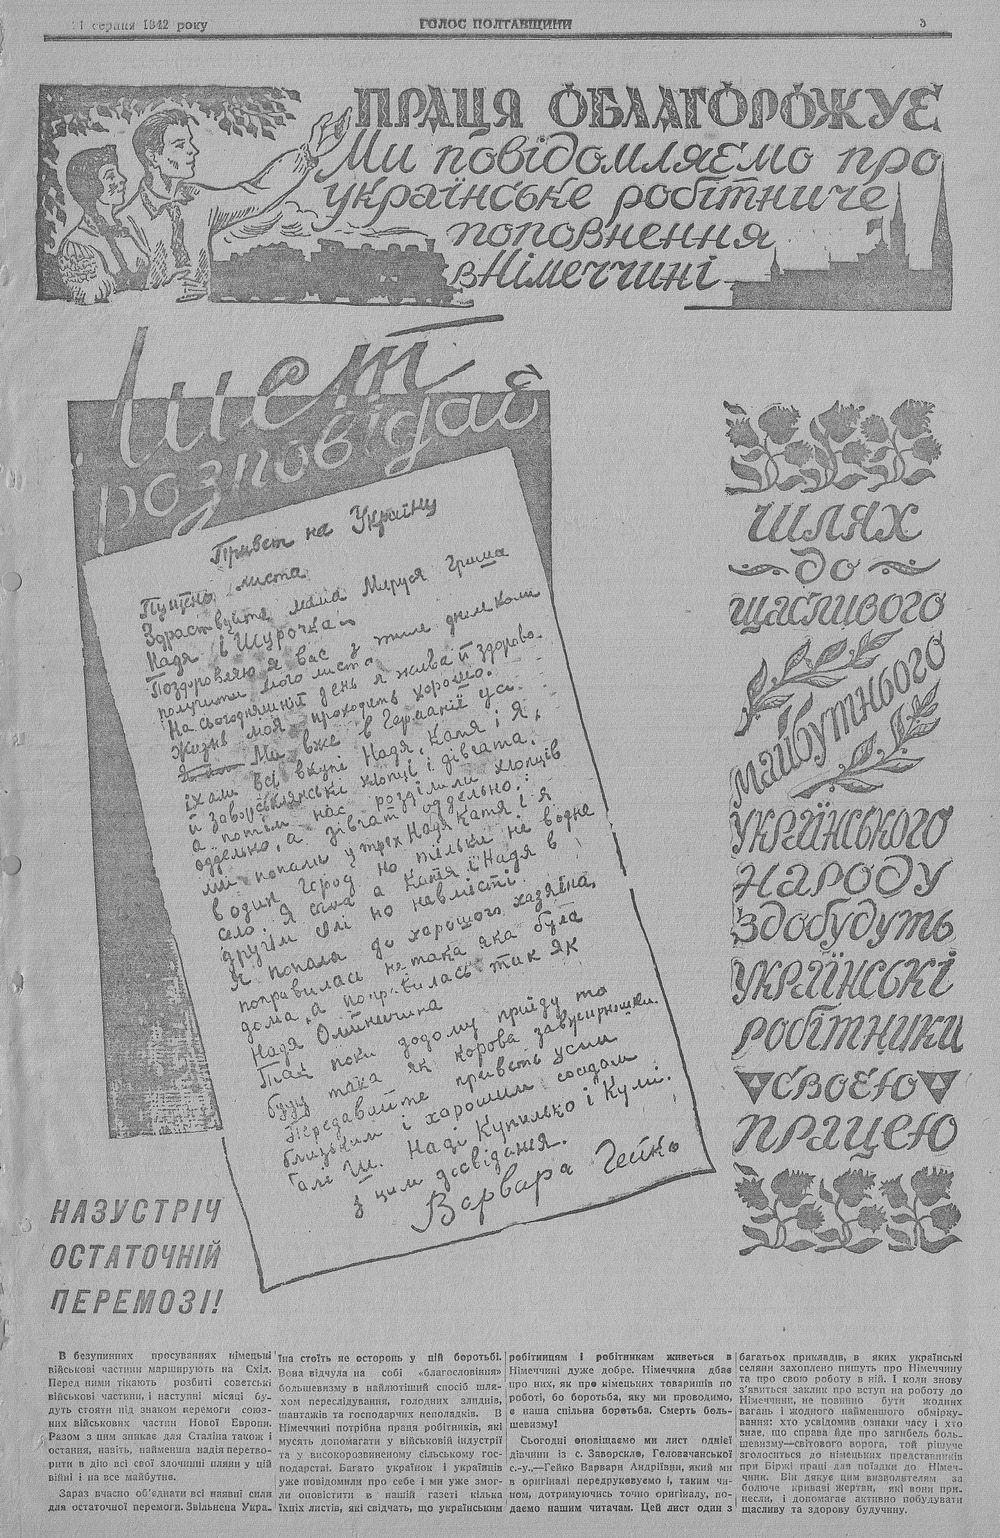 серпня 1942 року
ГОЛОС ПОЛТАВЩИНИ
3
ПРАЦЯ ОБЛАГОРОЖУЄ
Ми повідомляємо про
українське робітниче
поповнення
в Німеччині
Лист
розповідає
Привєт на Україну
Пущено листа
Здраствуйте мама Маруся Гриша
Надя і Шурочка
Поздоровляю я вас у тиле далекою
получити мого листа
На сьогоднішний день я жива й здорова.
Жизнь моя проходить хорошо.
Ми вже в Германії
їхали всі вкупі Надя, Катя і Я,
й заворсклянські хлопці і дівчата.
а потім нас розділили хлопців
оддельно, а дівчат оддельно:
ми попали у трьох Надя Катя і я
в один город но тільки не в одне
село. Я сама а Катя і Надя в
другім селі но навмісті.
Я попала до харошого хазяїна,
поправилась не така яка була
дома, а поправилась так як
Надя Олійнеччина
Так поки додому прийду то
буду така як корова
Передавайте привєть усим
близьким і харошим сосєдам
Галі Ш. Наді Купилько і Кумі.
з цим досвіданя.
Варвара Гейко
ШЛЯХ
ДО
ЩАСЛИВОГО
МАЙБУТНЬОГО
УКРАЇНСЬКОГО
НАРОДУ
ЗДОБУДУТЬ
УКРАЇНСЬКІ
РОБІТНИКИ
СВОЄЮ
ПРАЦЕЮ
НАЗУСТРІЧ
ОСТАТОЧНІЙ
ПЕРЕМОЗІ!
В безупинних просуваннях німецькі
військові частини марширують на Схід.
Перед ними тікають розбиті советські
військові частини, і наступні місяці бу-
дуть стояти під знаком перемоги союз-
них військових частин Нової Европи.
Разом з цим зникає для Сталіна також і
остання, навіть, найменша надія перетво-
рити в дію всі свої злочинні пляни у цій
війні і на все майбутнє.
Зараз вчасно об'єднати всі наявні сили
для остаточної перемоги. Звільнена Укра-
їна стоїть не осторонь у цій боротьбі.
Вона відчула на собі «благословіння»
большевизму в найлютіший спосіб шля-
хом переслідування, голодних злиднів,
шантажів та господарчих неполадків. В
Німеччині потрібна праця робітників, які
мусять допомагати у військовій індустрії
та у високорозвиненому сільському гос-
подарстві. Багато українок і українців
уже повідомили про себе і ми уже змог-
ли оповістити в нашій газеті кілька
їхніх листів, які свідчать, що українським
робітницям і робітникам живеться в
Німеччині дуже добре. Німеччина дбає
про них, як про німецьких товаришів по
роботі, бо боротьба, яку ми проводимо,
є наша спільна боротьба. Смерть боль-
шевизму!
Сьогодні оповіщаємо ми лист однієї
дівчини із с. Заворскло, Головачанської
с.-у.—Гейко Варвари Андріївни, який ми
в оригіналі передруковуємо і, таким чи-
ном, дотримуючись точно оригіналу, по-
даємо нашим читачам. Цей лист один з
багатьох прикладів, в яких українські
селяни захоплено пишуть про Німеччину
та про свою роботу в ній. І коли знову
з'явиться заклик про вступ на роботу до
Німеччини, не повинно бути жодних
вагань і жодного найменшого обмірку-
вання: хто усвідомив ознаки часу і хто
знає, що справа йде про загибель боль-
шевизму—світового ворога, той рішуче
зголоситься до німецьких представників
при Біржі праці для поїздки до Німеч-
чини. Він дякує цим визволителям за
болюче криваві жертви, які вони при-
несли, і допомагає активно побудувати
щасливу та здорову будучину.